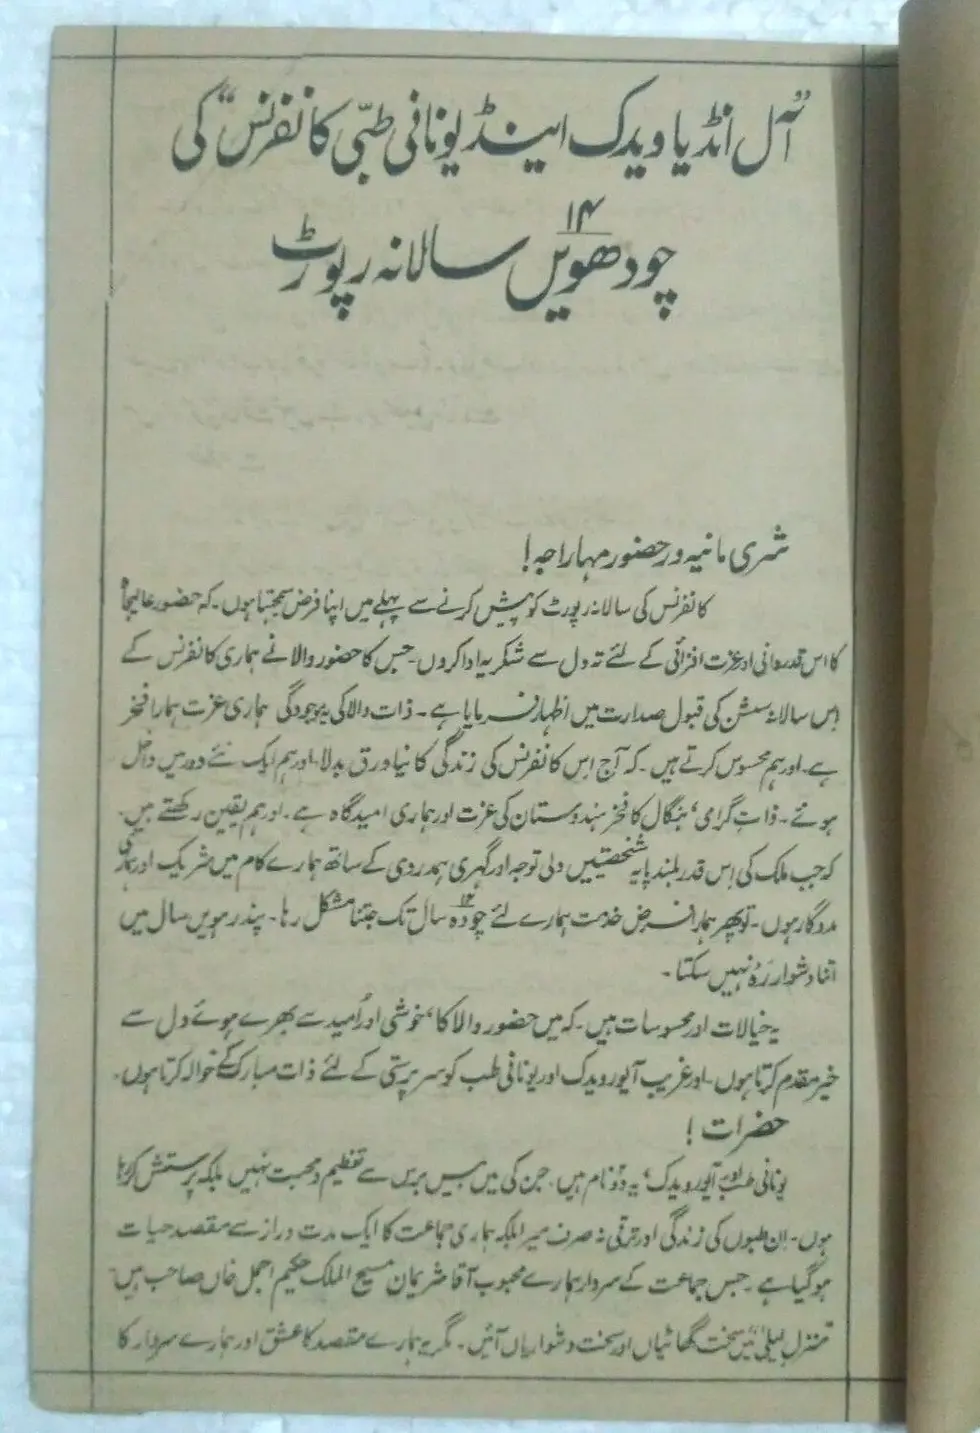 ”آل انڈیا ویدک اینڈ یونانی طبّی کانفرنس“ کی
۱۴
چودھویں سالانہ رپورٹ
شری مانیہ ور حضور مہاراجہ!
کانفرنس کی سالانہ رپورٹ کو پیش کرنے سے پہلے میں اپنا فرض سمجھتا ہوں۔ کہ حضور عالیجاہ
کا اس قدر دانی اور عزت افزائی کے لئے تہ دل سے شکریہ ادا کروں۔ جس کا حضور والا نے ہماری کانفرنس کے
اِس سالانہ سشن کی قبول صدارت میں اظہار فرمایا ہے۔ ذات والا کی موجودگی ہماری عزت ہمارا فخر
ہے۔ اور ہم محسوس کرتے ہیں۔ کہ آج اِس کانفرنس کی زندگی کا نیا ورق بدلا۔ اور ہم ایک نئے دور میں داخل
ہوئے۔ ذاتِ گرامی، بنگال کا فخر ہندوستان کی عزت اور ہماری امیدگاہ ہے۔ اور ہم یقین رکھتے ہیں۔
کہ جب ملک کی اِس قدر بلند پایہ شخصیتیں دلی توجہ اور گہری ہمدردی کے ساتھ ہمارے کام میں شریک اور ہماری
مددگار ہوں۔ تو پھر ہمارا فرض خدمت ہمارے لئے چودہ ۱۴ سال تک جتنا مشکل رہا۔ پندرہویں سال میں
اتنا دشوار رَہ نہیں سکتا۔
یہ خیالات اور محسوسات ہیں۔ کہ میں حضور والا کا، خوشی اور اُمید سے بھرے ہوئے دل سے
خیر مقدم کرتا ہوں۔ اور غریب آیورویدک اور یونانی طب کو سرپرستی کے لئے ذات مبارک کے حوالہ کرتا ہوں۔
حضرات!
یونانی طب اور آیورویدک، یہ دو نام ہیں۔ جن کی میں بیس برس سے تعظیم و محبت نہیں بلکہ پرستش کر رہا
ہوں۔ اِن طبوں کی زندگی اور ترقی نہ صرف میرا بلکہ ہماری جماعت کا ایک مدت دراز سے مقصد حیات
ہو گیا ہے۔ جس جماعت کے سردار ہمارے محبوب آقا شریمان مسیح الملک حکیم اجمل خاں صاحب ہیں
”منزلِ لیلیٰ“ میں سخت گھاٹیاں اور سخت دشواریاں آئیں۔ مگر یہ ہمارے مقصد کا عشق اور ہمارے سردار کا